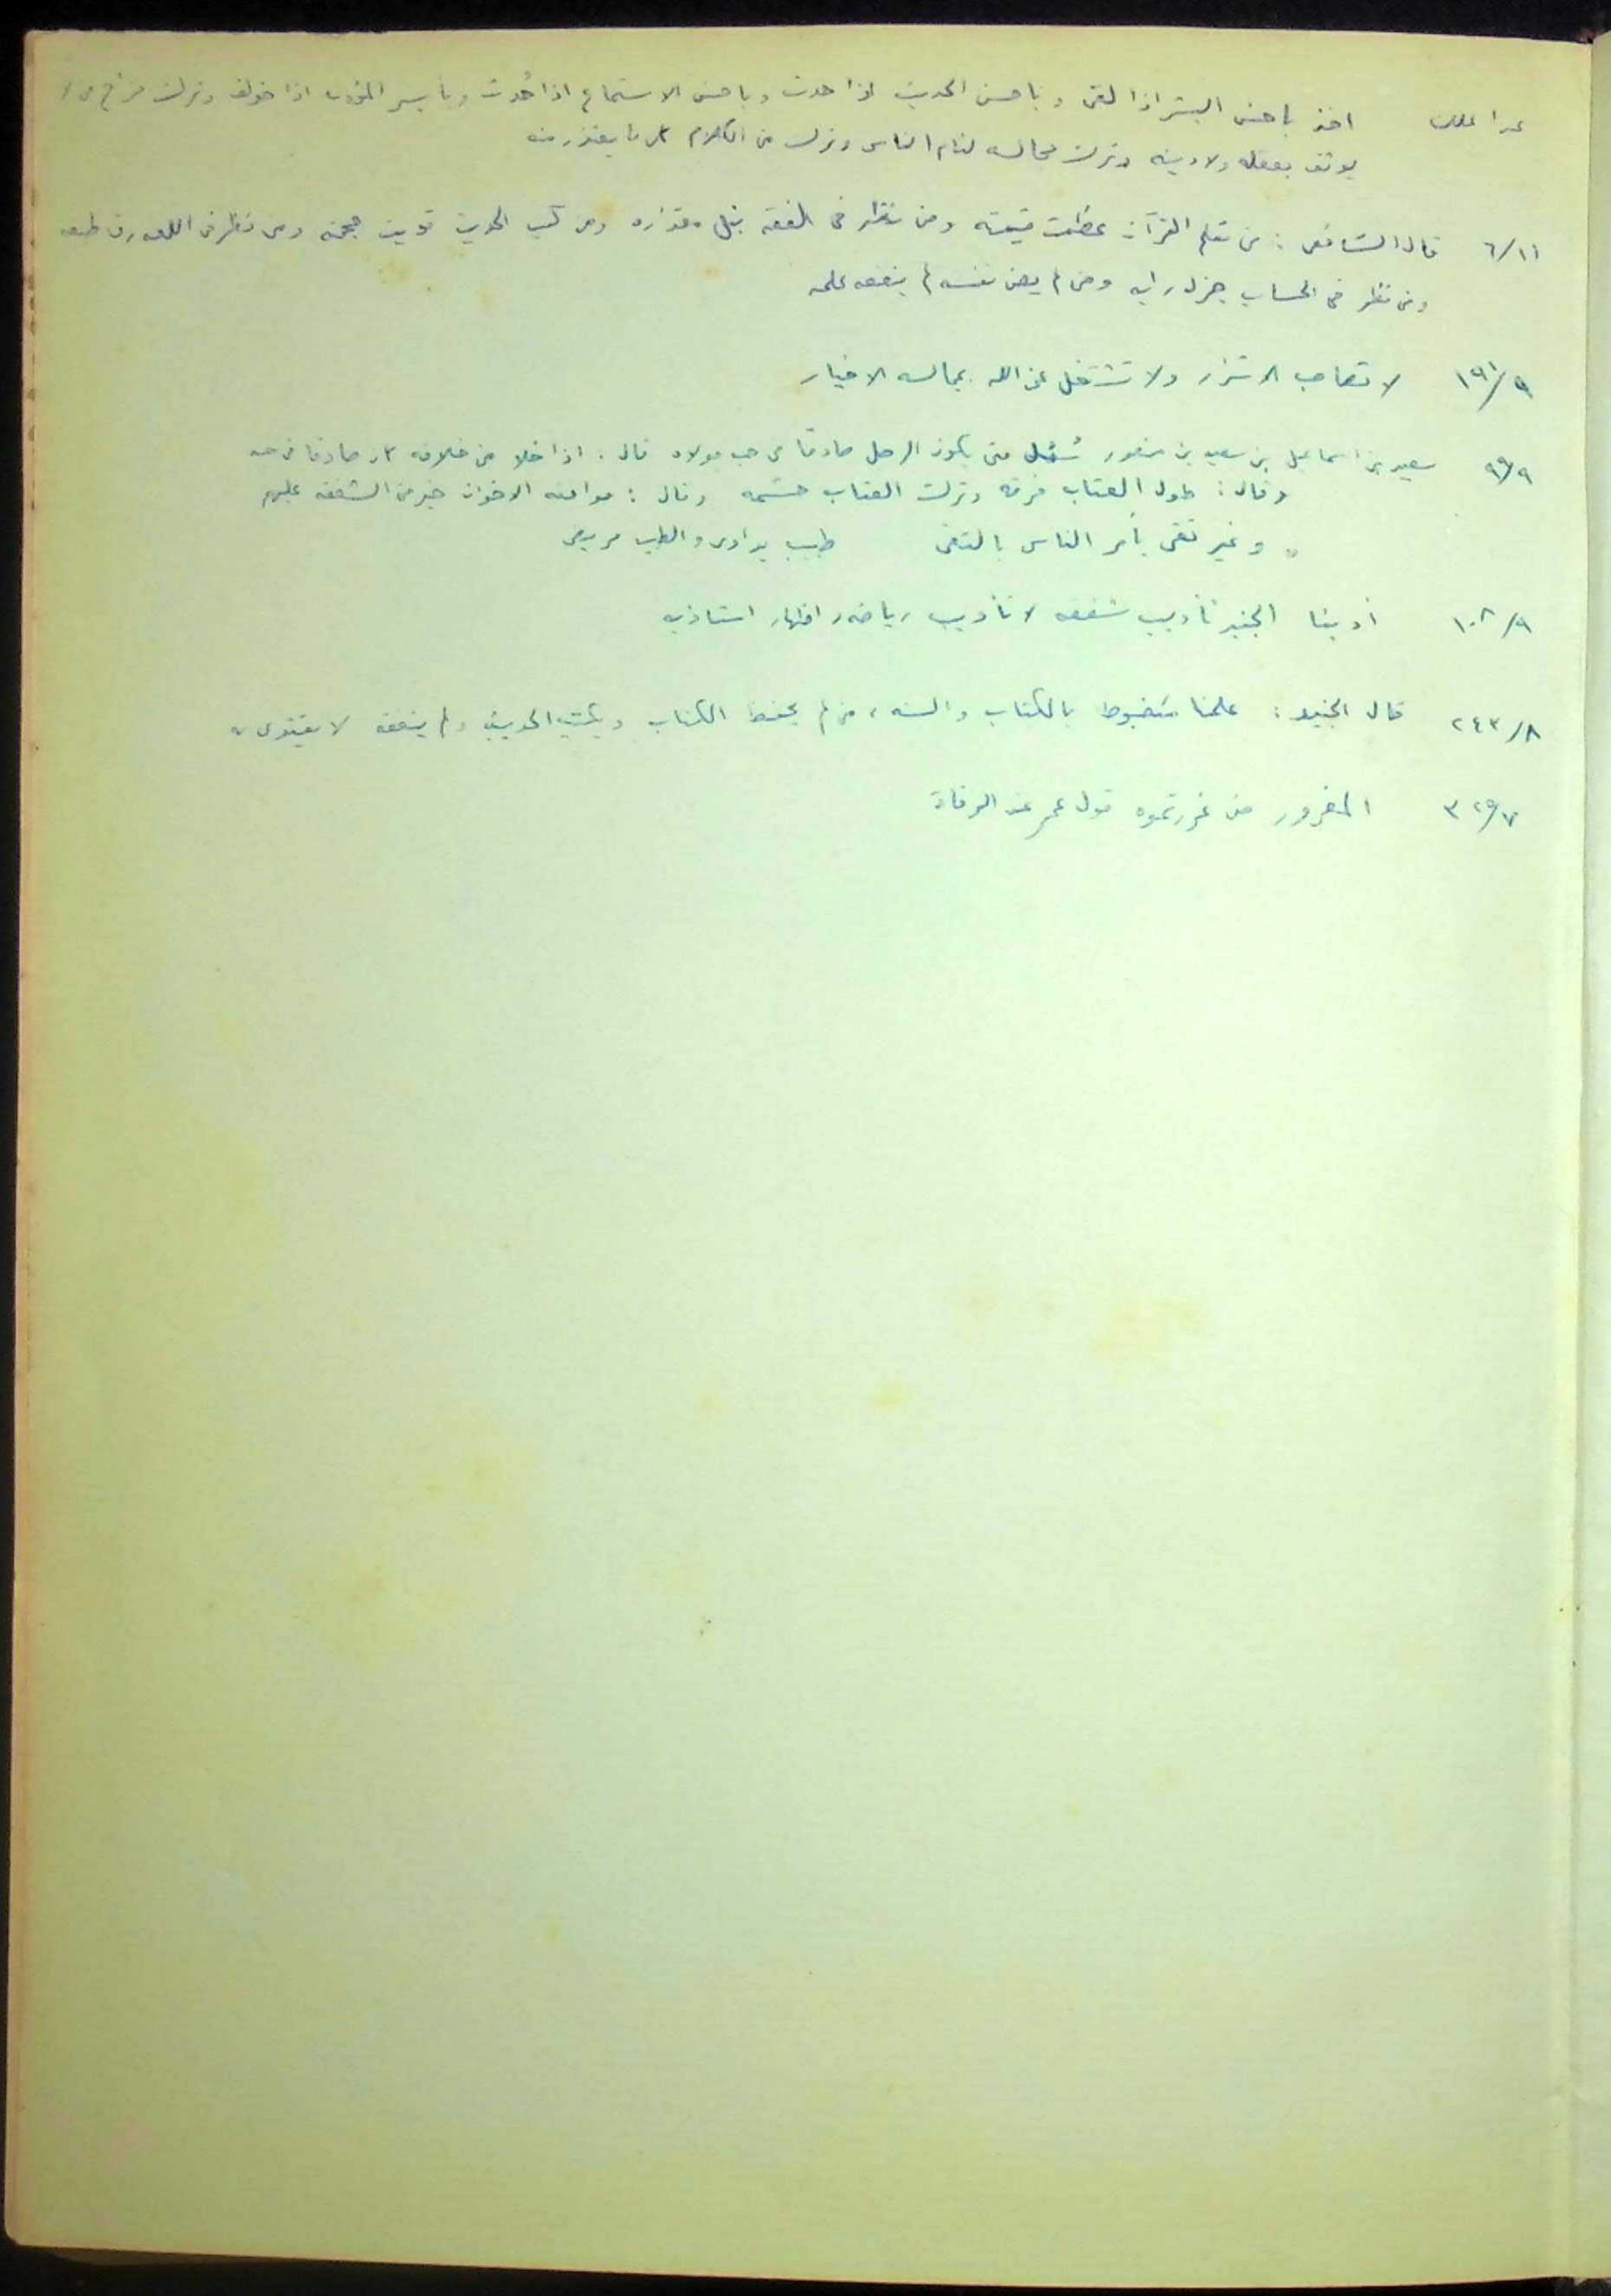 عبد الملك اخذ باحسن البشر اذا لقى وباحسن الحديث اذا حدث وباحسن الاستماع اذا حُدث وبأيسر المؤونة اذا خولف وترك مزاح من لا
يوثق بعقله ولا دينه وترك مجالسة لئام الناس وترك من الكلام كل ما يعتذر منه
٦/١١ قال الشافعى : من تعلم القرآن عظمت قيمته ومن نظر فى الفقه نبل مقداره ومن كتب الحديث قويت حجته ومن نظر فى اللغه رق طبعه
ومن نظر فى الحساب جزل رايه ومن لم يصن نفسه لم ينفعه علمه
١٩١/٩ لا تصاحب الاشرار ولا تشتغل عن الله بمجالسه الاخيار
٩٩/٩ سعيد بن اسماعيل بن سعيد بن منصور سُئل متى يكون الرجل صادقا فى حب مولاه قال : اذا خلا من خلافه كان صادقا فى حبه
وقال : طول العتاب فرقه وترك العتاب حشمه وقال : موافقه الاخوان خير من الشفقه عليهم
" وغير تقى يأمر الناس بالتقى طبيب يداوى والطبيب مريض
١٠٨/٩ أدبنا الجنيد تأديب شفقه لا تأديب رياضه واظهار استاذيه
٢٤٣/٨ قال الجنيد : علمنا مضبوط بالكتاب والسنه ، من لم يحفظ الكتاب ويكتب الحديث ولم يتفقه لا يقتدى به
٣٢٩/٧ المغرور من غررتموه قول عمر عند الوفاة